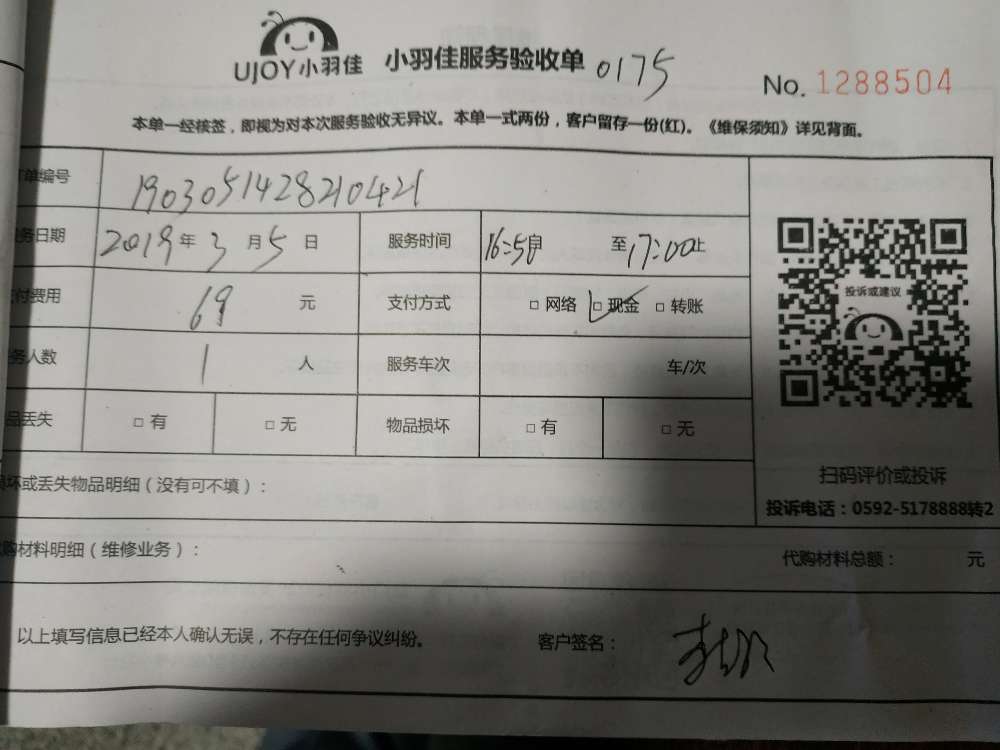 UJOY小羽佳 小羽佳服务验收单 0175
No. 1288504
本单一经核签，即视为对本次服务验收无异议。本单一式两份，客户留存一份(红)。《维保须知》详见背面。
单编号 190305142821042
务日期 2019年3月5日 服务时间 16:50 至17:00止
付费用 69 元 支付方式 □ 网络 □ 现金 □ 转账
务人数 1 人 服务车次 车/次
品丢失 □ 有 □ 无 物品损坏 □ 有 □ 无
投诉或建议
扫码评价或投诉
投诉电话：0592-5178888转2
坏或丢失物品明细（没有可不填）：
购材料明细（维修业务）： 代购材料总额： 元
以上填写信息已经本人确认无误，不存在任何争议纠纷。 客户签名：